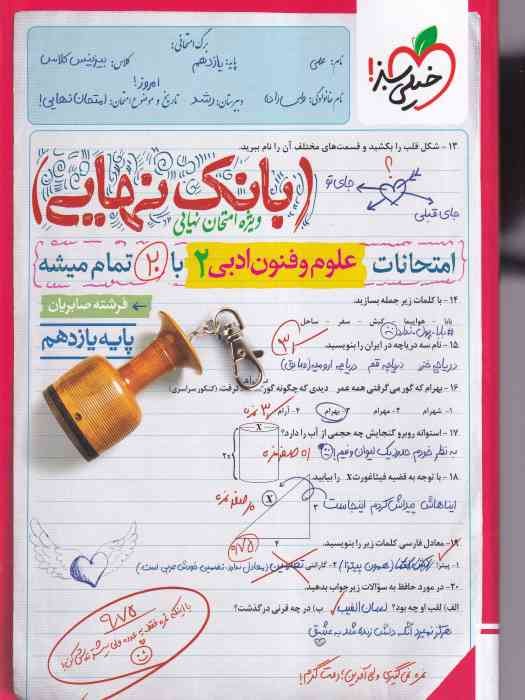 برگ امتحانی:
نام: علمی
پایه: یازدهم
کلاس: بیزینس کلاس
خیلی سبز!
نام خانوادگی:
دبیرستان: رشد
تاریخ و موضوع امتحان: امروز! امتحان نهایی!
۱۳ - شکل قلب را بکشید و قسمت‌های مختلف آن را نام ببرید.
؟
جای تو
جای قبلی
(بانک نهایی)
ویژه امتحان نهایی
امتحانات علوم و فنون ادبی ۲ با ۲۰ تمام میشه
فرشته صابریان
پایه یازدهم
۱۴ - با کلمات زیر جمله بسازید.
بابا - هواپیما - کیش - سفر - ساحل
#بابا_پول_نداره
۱۵ - نام سه دریاچه در ایران را بنویسید.
دریاچه خزر دریاچه قم دریاچه ارومیه (سابق)
۱۶ - بهرام که گور می‌گرفتی همه عمر دیدی که چگونه گور گرفت. (کنکور سراسری)
۱- شهرام ۲- مهرام ۳- بهرام ۴- آرام
۳ نمره
۱۷ - استوانه روبرو گنجایش چه حجمی از آب را دارد؟
x
۲۰
به نظر خودم حدود یک لیوان و نصفی!
صفر نمره
۱۸ - با توجه به قضیه فیثاغورث x را بیابید.
ایناهاش پیداش کردم اینجاست
x
۳
۴
صفر نمره
۱۹ - معادل فارسی کلمات زیر را بنویسید.
۱- پیتزا: (همون پیتزا) ۲- گارانتی: تضمین
۲۰ - در مورد حافظ به سؤالات زیر جواب بدهید.
الف) لقب او چه بود؟ لسان الغیب ب) در چه قرنی درگذشت؟
هرگز نمیرد آنکه دلش زنده شد به عشق
۹/۷۵